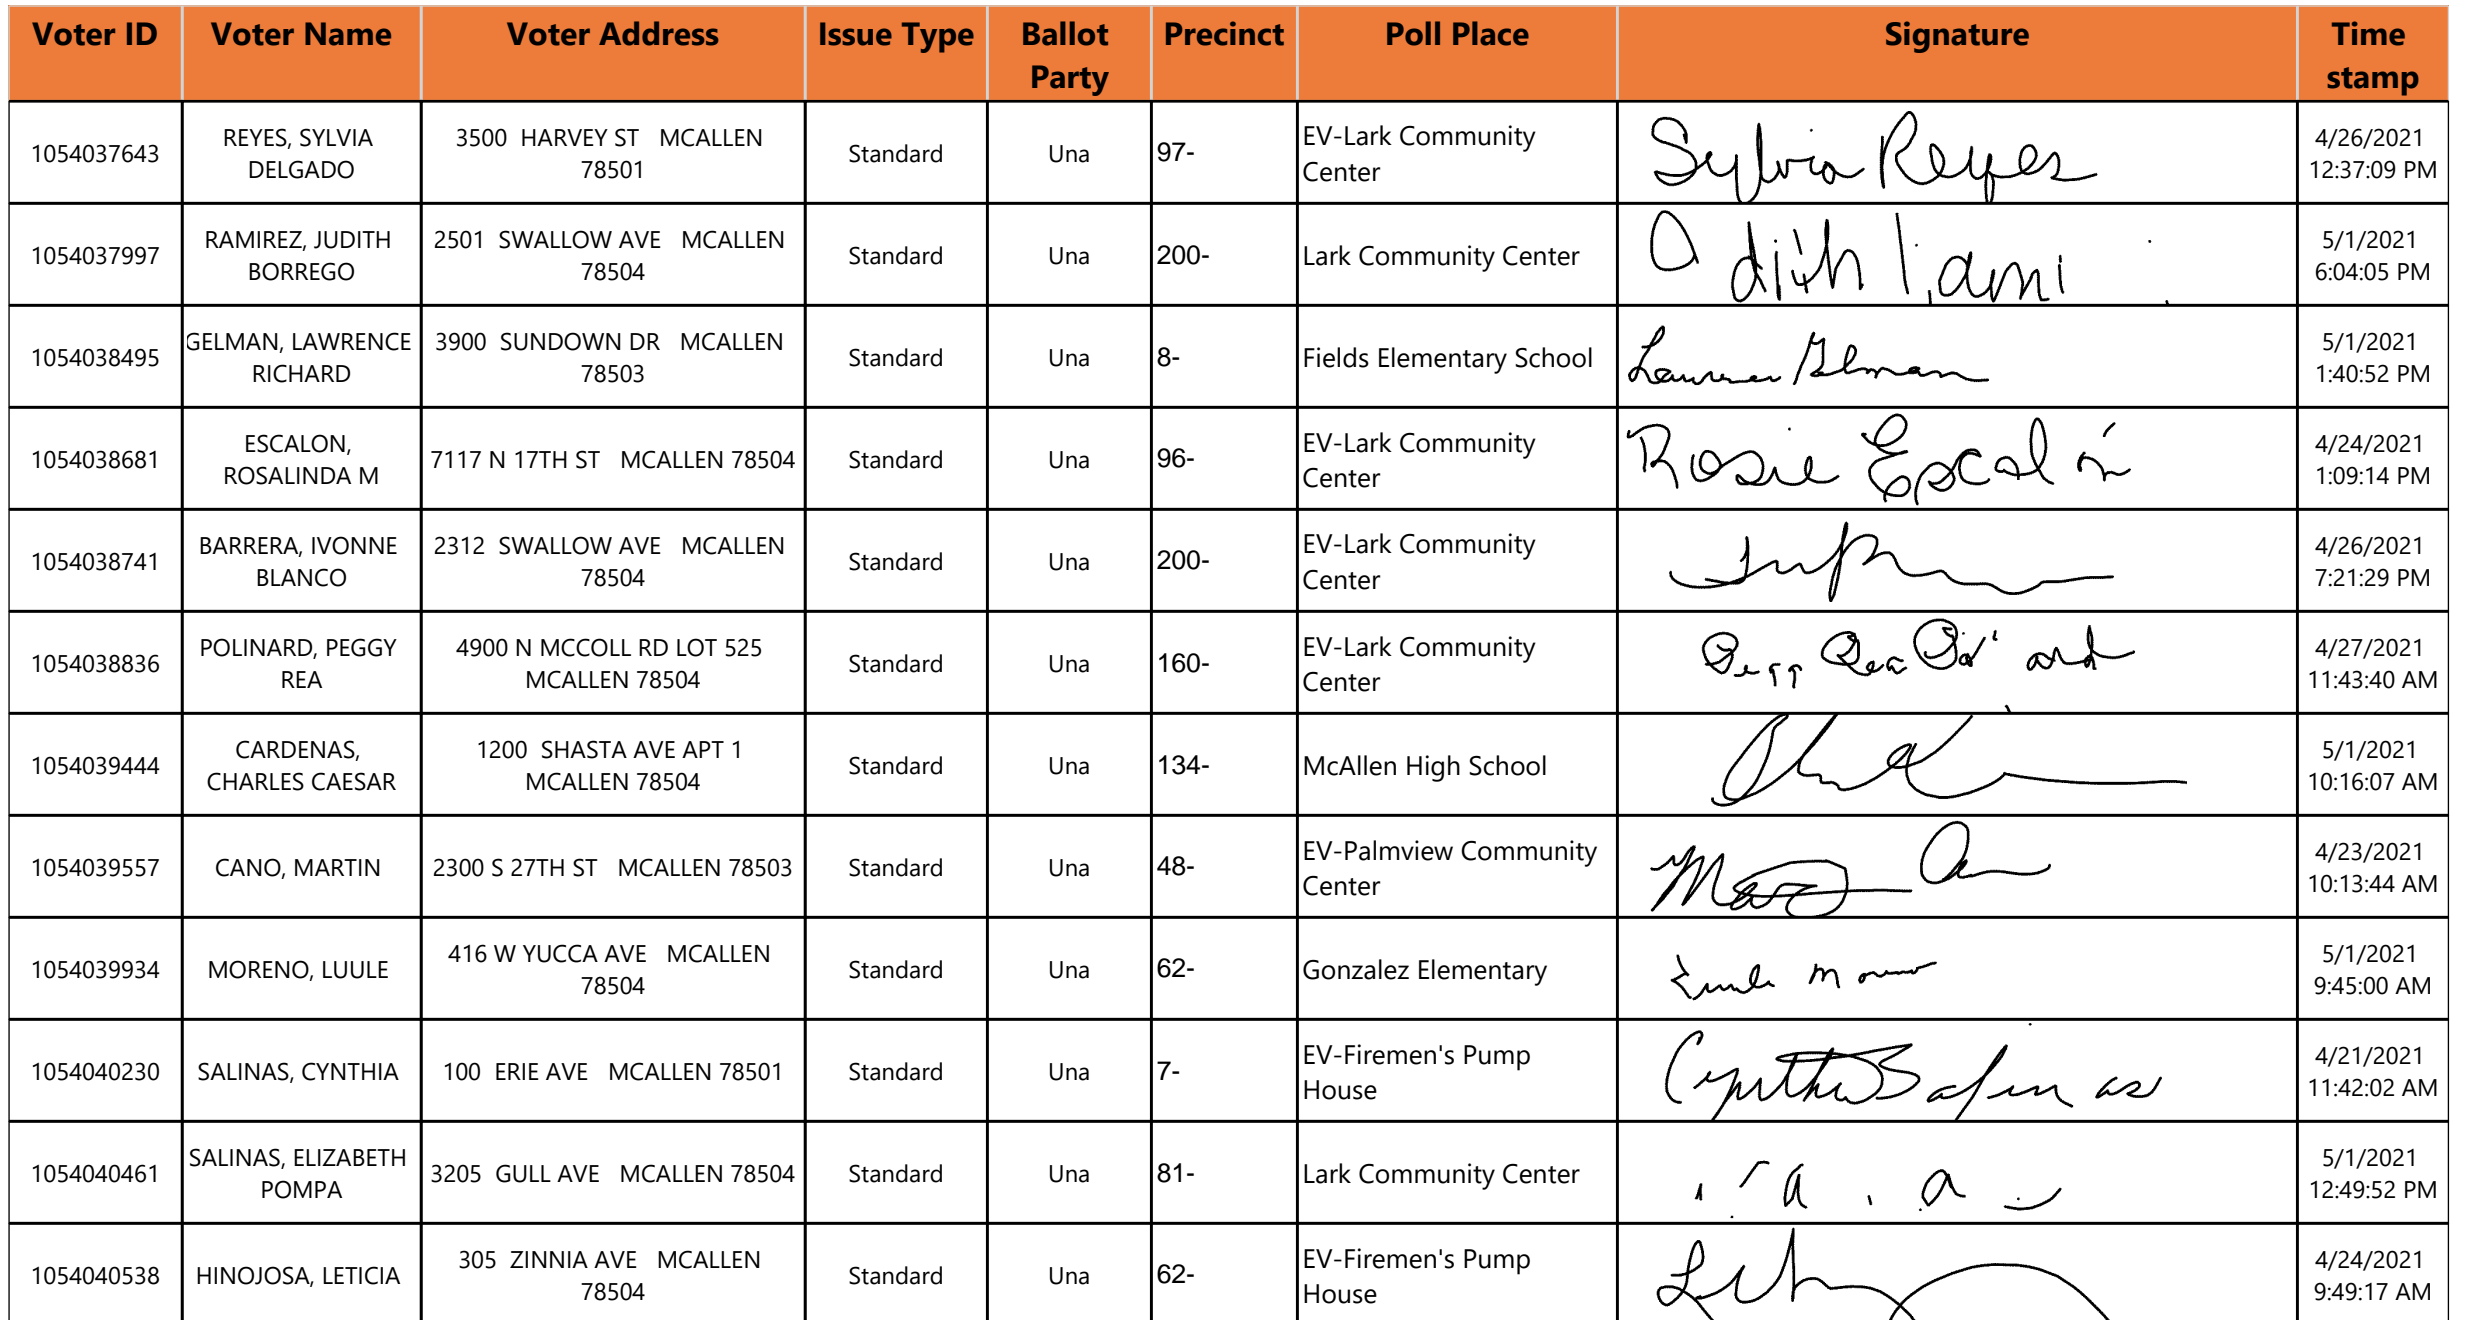 Voter ID Voter Name Voter Address Issue Type Ballot Party Precinct Poll Place Signature Time stamp
1054037643 REYES, SYLVIA DELGADO 3500 HARVEY ST MCALLEN 78501 Standard Una 97- EV-Lark Community Center Sylvia Reyes 4/26/2021 12:37:09 PM
1054037997 RAMIREZ, JUDITH BORREGO 2501 SWALLOW AVE MCALLEN 78504 Standard Una 200- Lark Community Center 5/1/2021 6:04:05 PM
1054038495 GELMAN, LAWRENCE RICHARD 3900 SUNDOWN DR MCALLEN 78503 Standard Una 8- Fields Elementary School Lawrence Gelman 5/1/2021 1:40:52 PM
1054038681 ESCALON, ROSALINDA M 7117 N 17TH ST MCALLEN 78504 Standard Una 96- EV-Lark Community Center Rosie Escalón 4/24/2021 1:09:14 PM
1054038741 BARRERA, IVONNE BLANCO 2312 SWALLOW AVE MCALLEN 78504 Standard Una 200- EV-Lark Community Center 4/26/2021 7:21:29 PM
1054038836 POLINARD, PEGGY REA 4900 N MCCOLL RD LOT 525 MCALLEN 78504 Standard Una 160- EV-Lark Community Center 4/27/2021 11:43:40 AM
1054039444 CARDENAS, CHARLES CAESAR 1200 SHASTA AVE APT 1 MCALLEN 78504 Standard Una 134- McAllen High School 5/1/2021 10:16:07 AM
1054039557 CANO, MARTIN 2300 S 27TH ST MCALLEN 78503 Standard Una 48- EV-Palmview Community Center 4/23/2021 10:13:44 AM
1054039934 MORENO, LUULE 416 W YUCCA AVE MCALLEN 78504 Standard Una 62- Gonzalez Elementary 5/1/2021 9:45:00 AM
1054040230 SALINAS, CYNTHIA 100 ERIE AVE MCALLEN 78501 Standard Una 7- EV-Firemen's Pump House Cynthia Salinas 4/21/2021 11:42:02 AM
1054040461 SALINAS, ELIZABETH POMPA 3205 GULL AVE MCALLEN 78504 Standard Una 81- Lark Community Center 5/1/2021 12:49:52 PM
1054040538 HINOJOSA, LETICIA 305 ZINNIA AVE MCALLEN 78504 Standard Una 62- EV-Firemen's Pump House 4/24/2021 9:49:17 AM